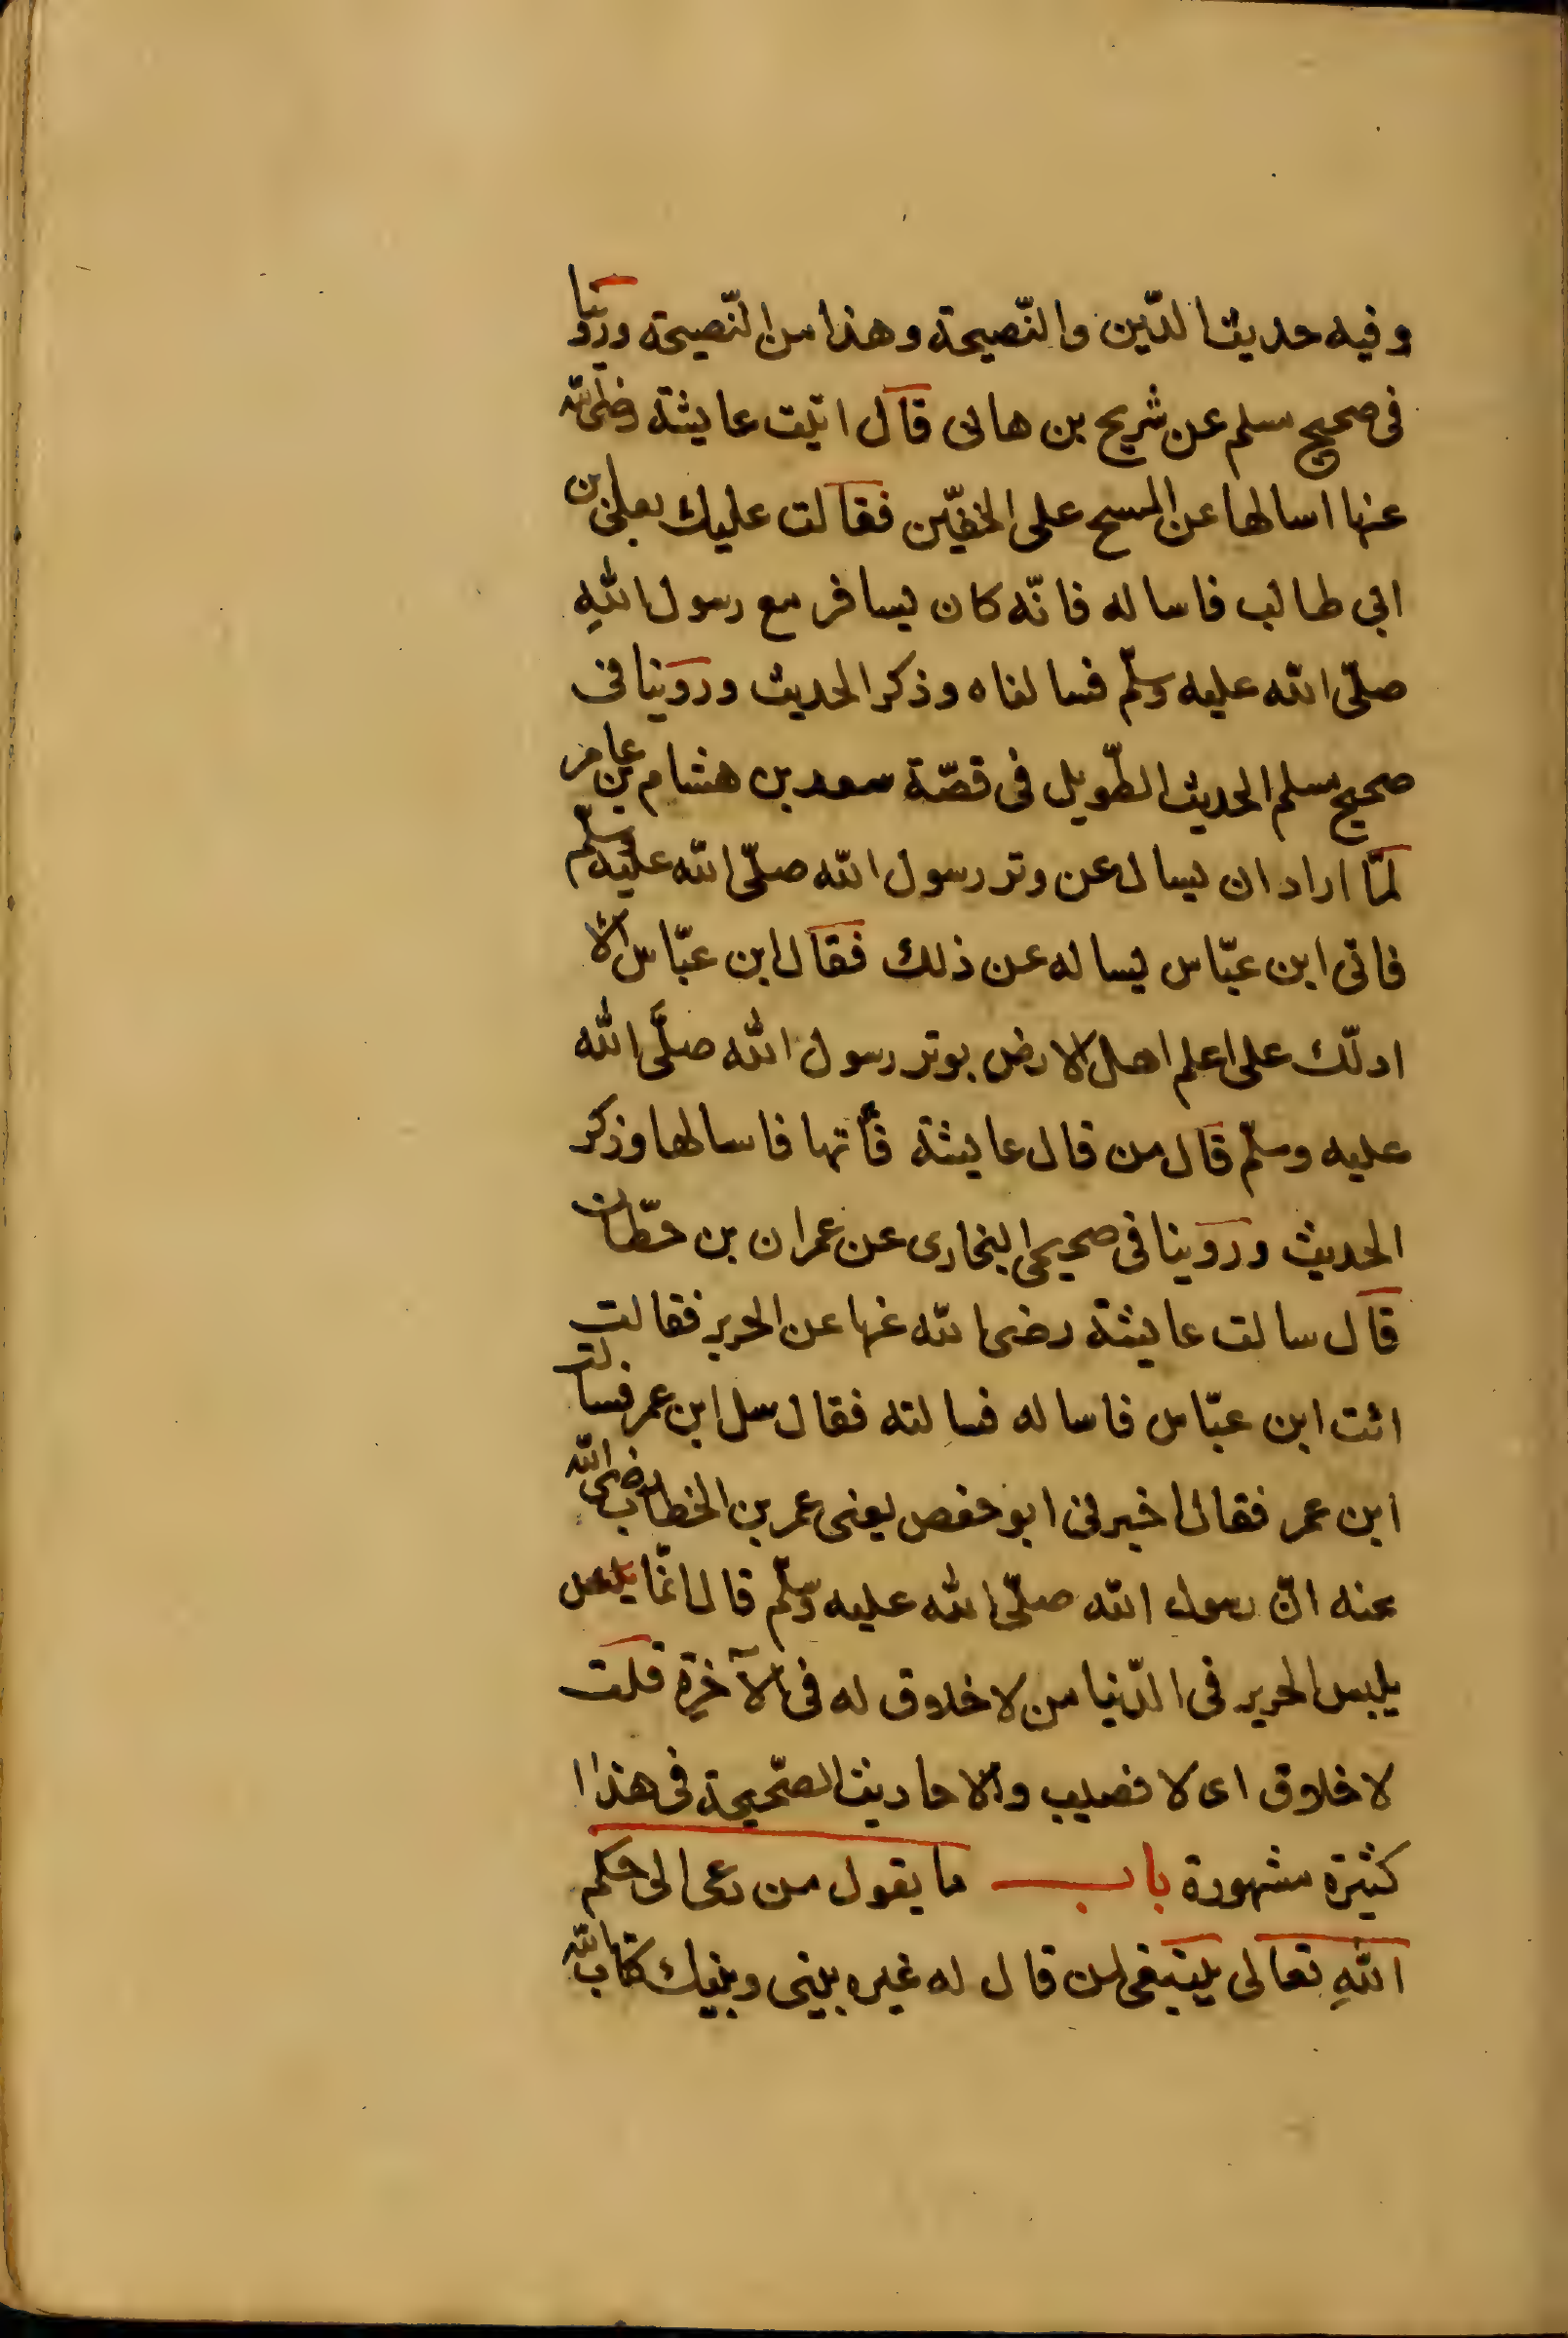 وفيه حديث الدّين والنّصيحة وهذا من النّصيحة وروّينا
فى صحيح مسلم عن شريح بن هانى قال اتيت عايشة رضى الله
عنها اسالها عن المسح على الخفّين فقالت عليك بعلى بن
ابي طالب فاساله فانّه كان يسافر مع رسول اللهِ
صلّى الله عليه وسلّم فسالناه وذكر الحديث وروينا فى
صحيح مسلم الحديث الطّويل فى قصّة سعد بن هشام بن عامر
لمّا اراد ان يسال عن وتر رسول الله صلّى الله عليه وسلّم
فاتى ابن عبّاس يساله عن ذلك فقال ابن عبّاس الا
ادلّك على اعلم اهل الارض بوتر رسول الله صلَّى الله
عليه وسلّم قال من قال عايشة فأتها فاسالها وذكر
الحديث وروينا فى صحيحى البخارى عن عمران بن حطّان
قال سالت عايشة رضى الله عنها عن الحرير فقالت
ائت ابن عبّاس فاساله فسالته فقال سل ابن عمر فسالت
ابن عمر فقال اخبرنى ابو حفص يعنى عمر بن الخطاب رضى الله
عنه انّ رسول الله صلّى الله عليه وسلّم قال انّما يلبس
يلبس الحرير فى الدّنيا من لا خلاق له فى الآخرة قلت
لا خلاق اى لا نصيب والاحاديث الصّحيحة فى هذا
كثيرة مشهورة باب ما يقول من دعى الى حكم
اللهِ تعالى ينبغى لمن قال له غيره بينى وبينك كتاب الله